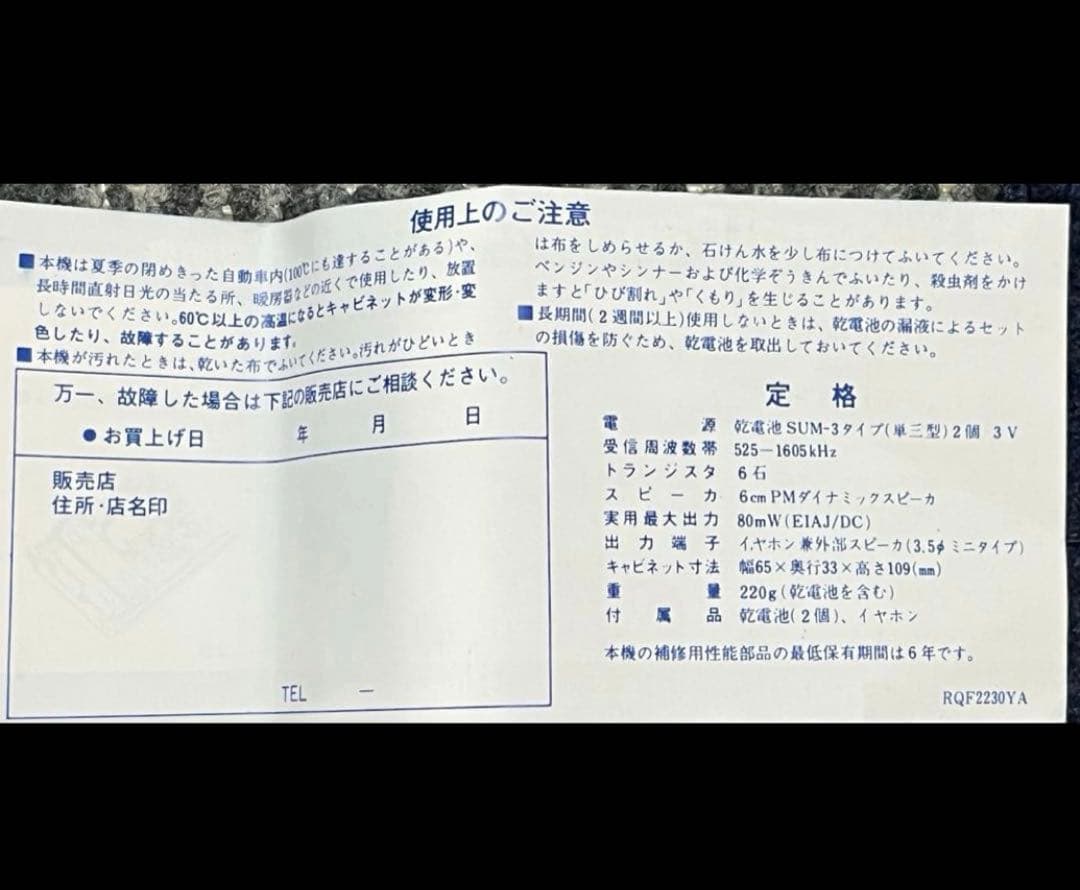 使用上のご注意
■本機は夏季の閉めきった自動車内(100℃にも達することがある)や、
長時間直射日光の当たる所、暖房器などの近くで使用したり、放置
しないでください。60℃以上の高温になるとキャビネットが変形・変
色したり、故障することがあります。
■本機が汚れたときは、乾いた布でふいてください。汚れがひどいとき
は布をしめらせるか、石けん水を少し布につけてふいてください。
ベンジンやシンナーおよび化学ぞうきんでふいたり、殺虫剤をかけ
ますと「ひび割れ」や「くもり」を生じることがあります。
■長期間(2週間以上)使用しないときは、乾電池の漏液によるセット
の損傷を防ぐため、乾電池を取出しておいてください。
万一、故障した場合は下記の販売店にご相談ください。
●お買上げ日 年 月 日
販売店
住所・店名印
TEL ー
定格
電源 乾電池 SUM-3タイプ(単三型)2個 3V
受信周波数帯 525-1605kHz
トランジスタ 6石
スピーカ 6cmPMダイナミックスピーカ
実用最大出力 80mW(EIAJ/DC)
出力端子 イヤホン兼外部スピーカ(3.5φミニタイプ)
キャビネット寸法 幅65×奥行33×高さ109(mm)
重量 220g(乾電池を含む)
付属品 乾電池(2個)、イヤホン
本機の補修用性能部品の最低保有期間は6年です。
RQF2230YA